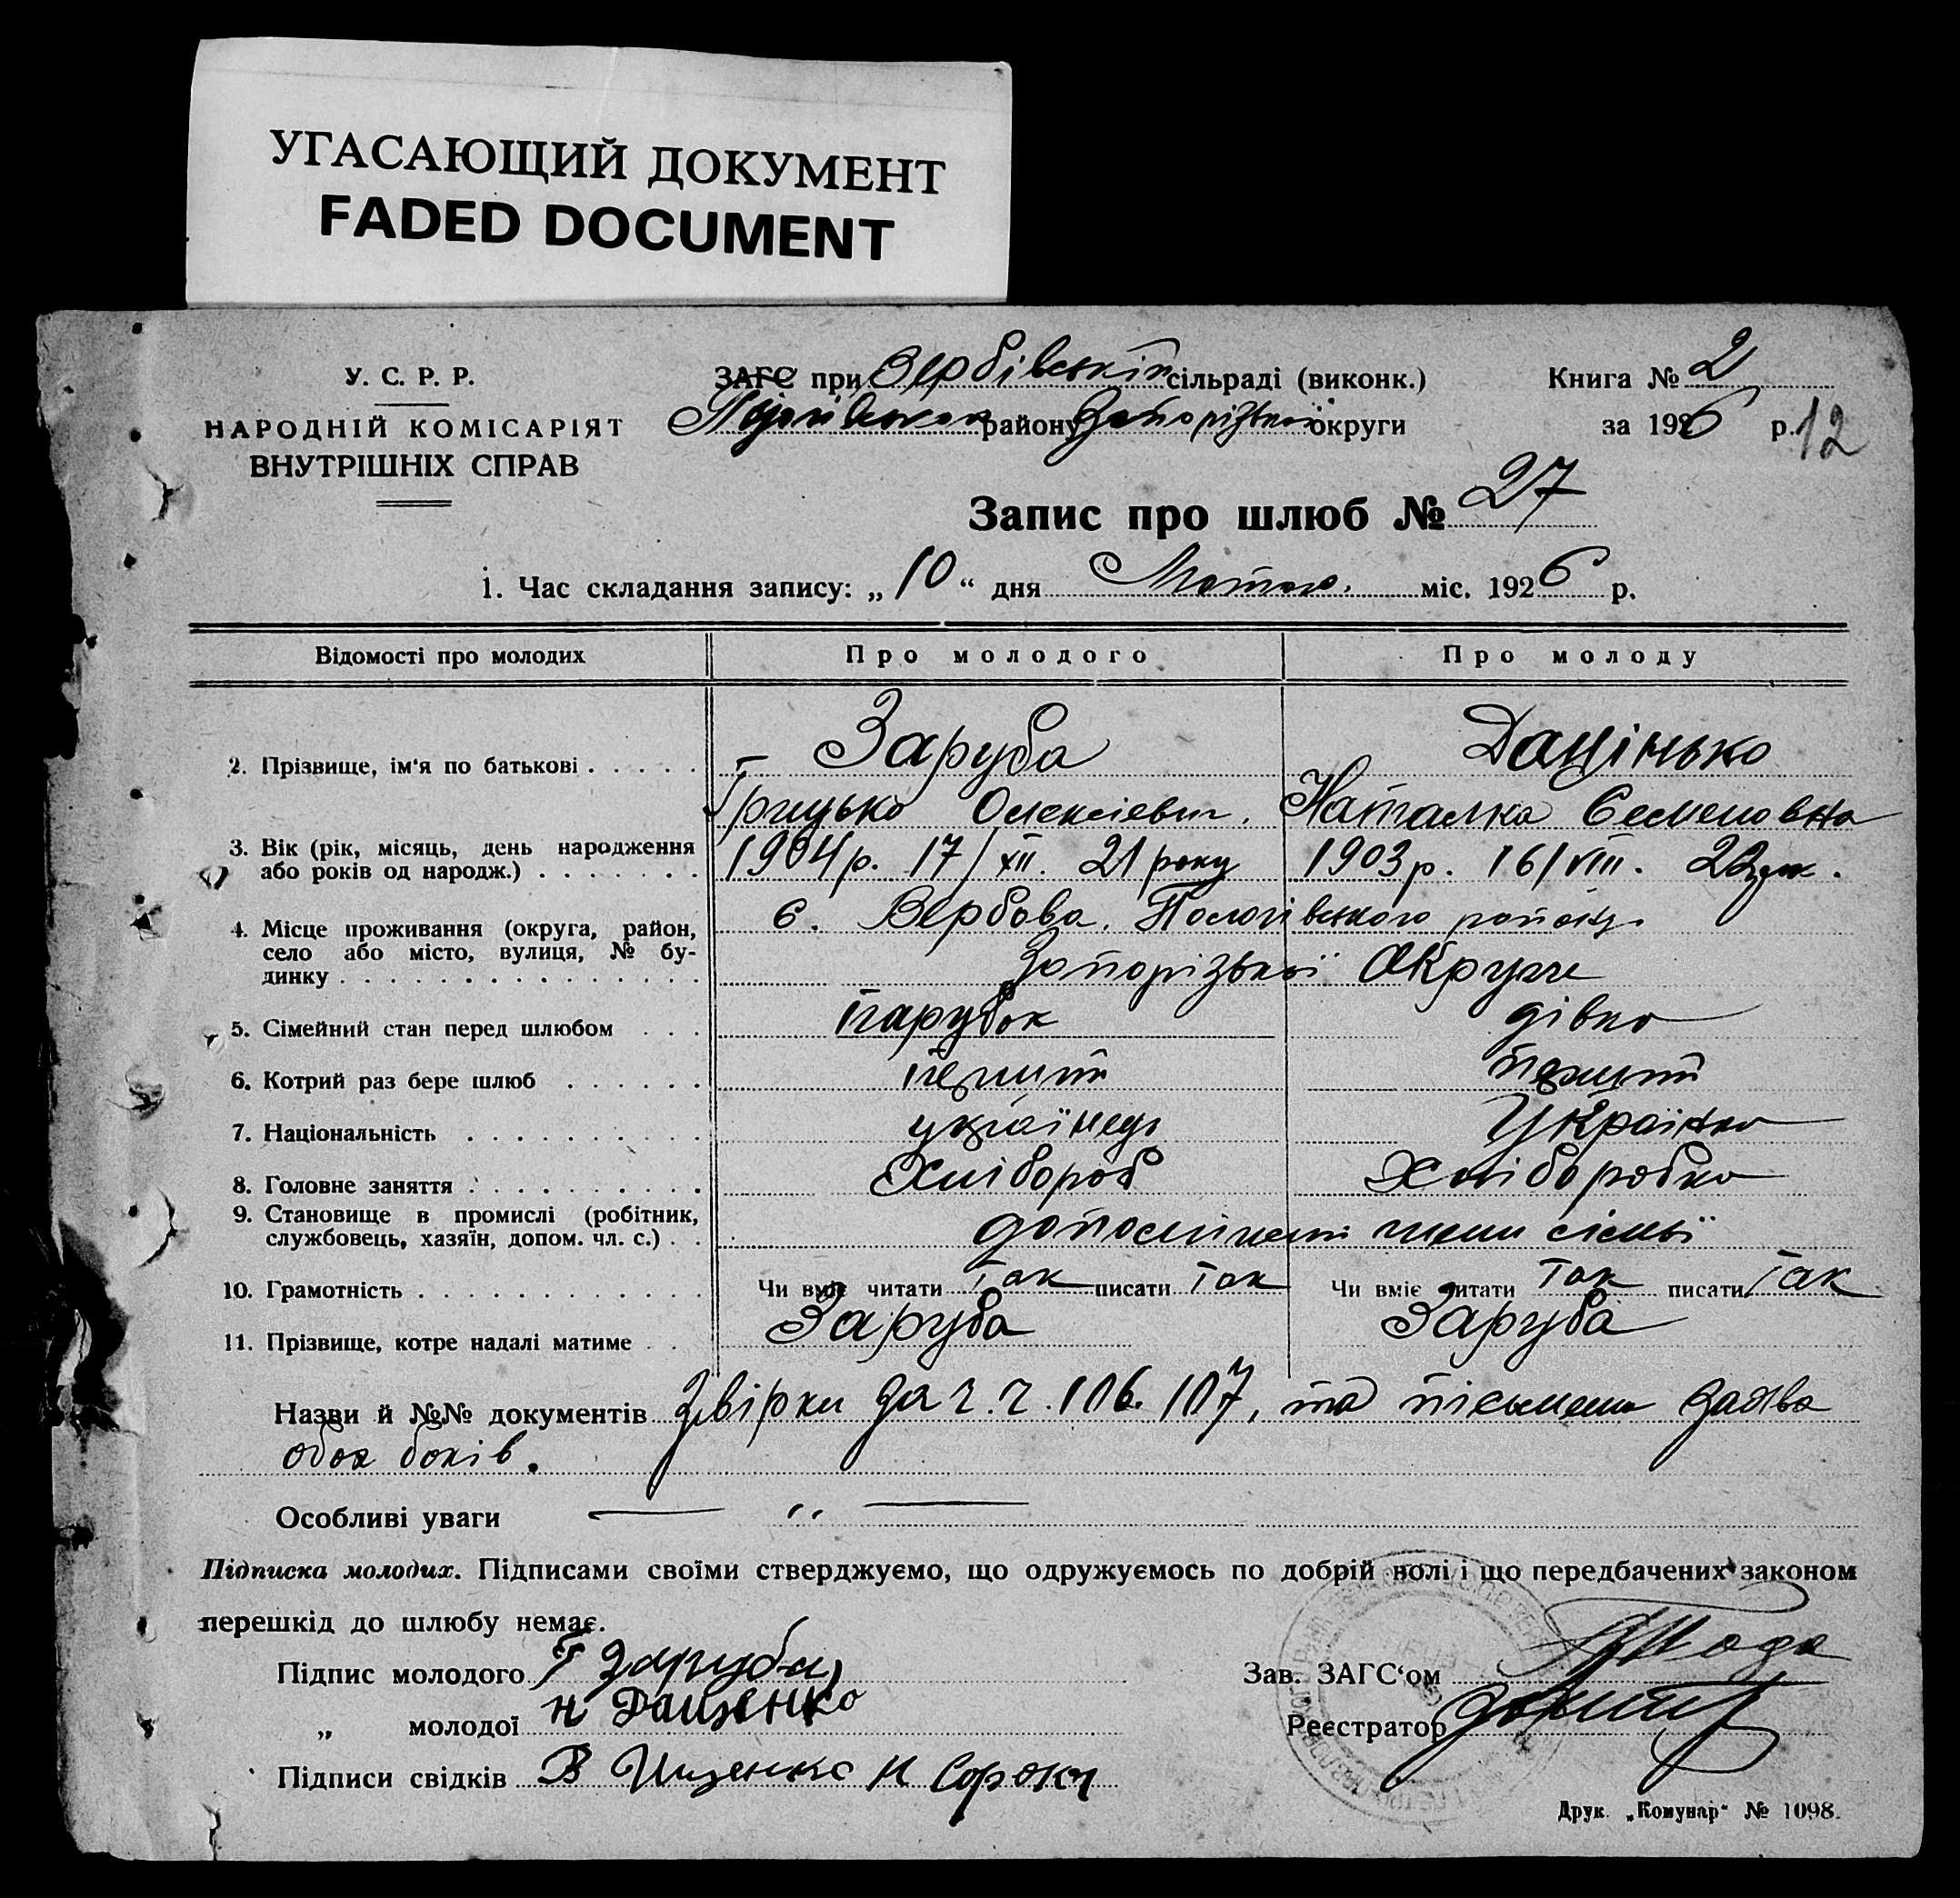 УГАСАЮЩИЙ ДОКУМЕНТ
FADED DOCUMENT
У. С. Р. Р.
НАРОДНІЙ КОМІСАРІЯТ
ВНУТРІШНІХ СПРАВ
ЗАГС при Вербівській сільраді (виконк.)
району Запорізької округи
Книга № 2
за 1926 р.
12
Запис про шлюб № 27
1. Час складання запису: „ 10 “ дня Лютого міс. 1926 р.
Відомості про молодих
Про молодого
Про молоду
2. Прізвище, ім‘я по батькові
Заруба
Дацінько
Грицько Олексіевич.
Наталка Семеновна
3. Вік (рік, місяць, день народження
або років од народж.)
1904 р. 17/XII. 21 року
1903 р. 16/VIII. 22 рок.
4. Місце проживання (округа, район,
село або місто, вулиця, № бу-
динку
с. Вербова. Пологівського району
Запорізької Округи
5. Сімейний стан перед шлюбом
парубок
дівка
6. Котрий раз бере шлюб
перший
перший
7. Національність
українець
Українка
8. Головне заняття
Хлібороб
Хліборобка
9. Становище в промислі (робітник,
службовець, хазяїн, допом. чл. с.)
члени сімьї
10. Грамотність
Чи вміє читати Так писати Так
Чи вміє читати Так писати Так
11. Прізвище, котре надалі матиме
Заруба
Заруба
Назви й №№ документів Звірки за ч.ч. 106. 107, та письменна заява
обох боків.
Особливі уваги — „ —
Підписка молодих. Підписами своїми стверджуємо, що одружуємось по добрій волі і що передбачених законом
перешкід до шлюбу немає.
Підпис молодого Г Заруба
„ молодої Н Даценко
Підписи свідків В Ищенко Н Сорока
Зав. ЗАГС‘ом
Реєстратор
Друк. „Комунар“ № 1098.